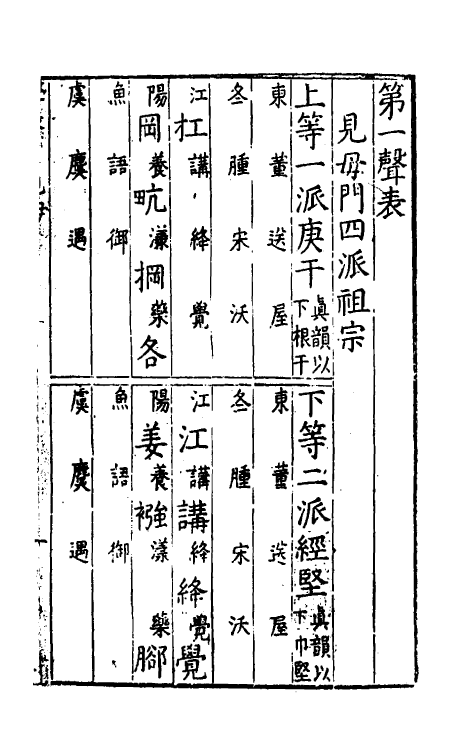 第一聲表
見母門四派祖宗
上等一派庚干眞韻以下根干
東 董 送 屋
冬 腫 宋 沃
江扛 講 絳 覺
陽岡 養㽘 漾掆 藥各
魚 語 御
虞 麌 遇
下等二派經堅眞韻以下巾堅
東 董 送 屋
冬 腫 宋 沃
江江 講講 絳絳 覺覺
陽姜 養襁 漾 藥腳
魚 語 御
虞 麌 遇